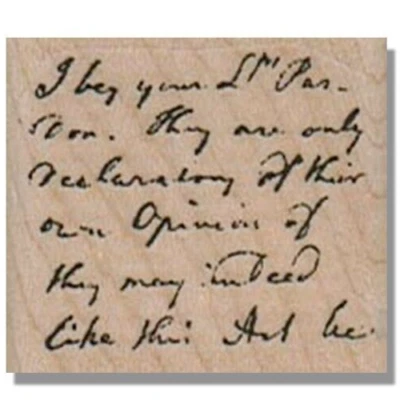 I beg your Lps Par-
don. They are only
declaratory of their
own Opinion of
they may indeed
like this Act